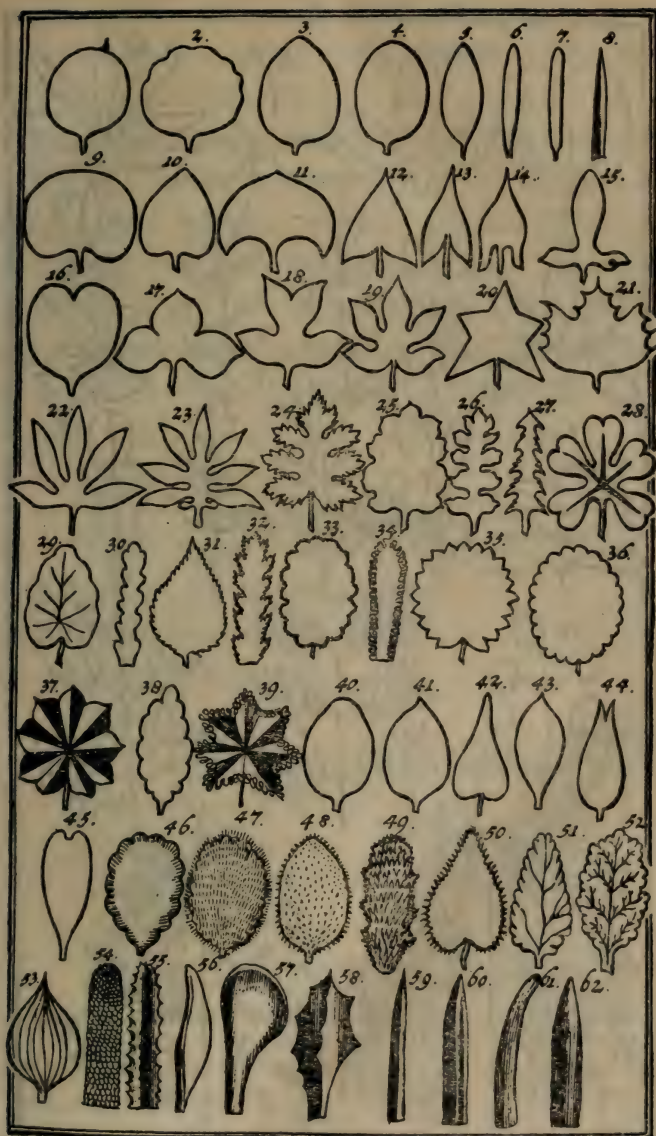 2. 3. 4. 5. 6. 7. 8.
9. 10. 11. 12. 13. 14. 15.
16. 17. 18. 19. 20. 21.
22. 23. 24. 25. 26. 27. 28.
29. 30. 31. 32. 33. 34. 35. 36.
37. 38. 39. 40. 41. 42. 43. 44.
45. 46. 47. 48. 49. 50. 51. 52.
53. 54. 55. 56. 57. 58. 59. 60. 61. 62.